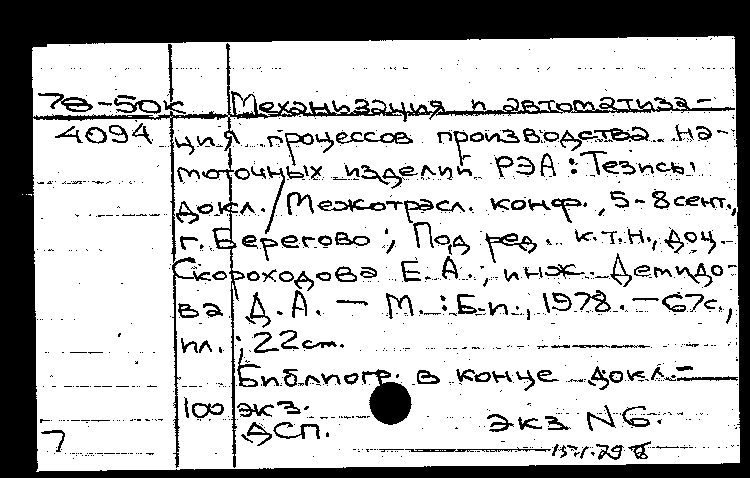 78-50к Механизация и автоматиза-
4094 ция процессов производства на-
моточных изделий РЭА : Тезисы
докл. / Межотрасл. конф., 5-8 сент.,
г. Берегово ; Под ред. к.т.н., доц.
Скороходова Е.А. ; инж. Демидо-
ва Д.А. — М. : Б.и., 1978. — 67с.,
ил. ; 22 см.
Библиогр. в конце докл. —
100 экз.
ДСП. экз N6.
7 15.1.79